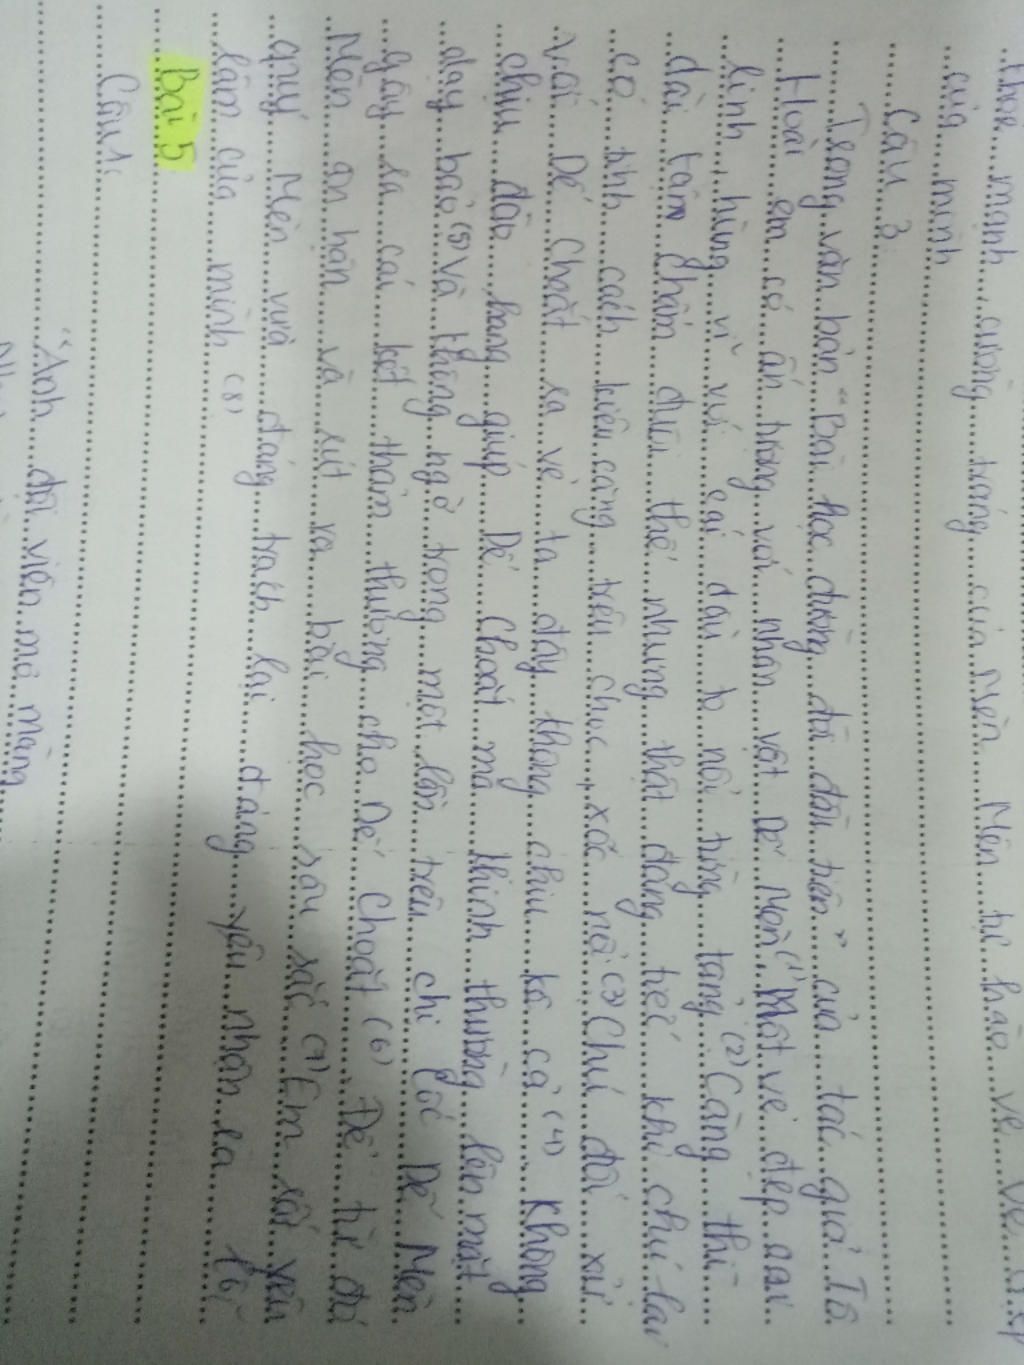 khỏe mạnh, cường tráng của Mèn. Mèn tự hào về vẻ đẹp
của mình
Câu 3
Trong văn bản "Bài học đường đời đầu tiên" của tác giả Tô
Hoài em có ấn tượng với nhân vật Dế Mèn (1) Một vẻ đẹp oai
linh, hùng vĩ với cái đầu to nổi từng tảng (2) Càng thì
dài bậm chấm đuôi thế nhưng thật đáng tiếc khi chú lại
có tính cách kiêu căng trêu chọc, xốc nổi (3) Chú đối xử
với Dế Choắt ra vẻ ta đây không chịu kẻ cả (4) Không
chịu đào hang giúp Dế Choắt mà khinh thường lên mặt
dạy bảo (5) và không ngờ trong một lần trêu chị Cốc Dế Mèn
gây ra cái kết thảm thương cho Dế Choắt (6) Để từ đó
Mèn ân hận và rút ra bài học sâu sắc (7) Em rất yêu
quý Mèn vừa đáng trách lại đáng yêu nhận ra lỗi
lầm của mình (8)
Bài 5
Câu 1
"Anh đội viên mơ màng